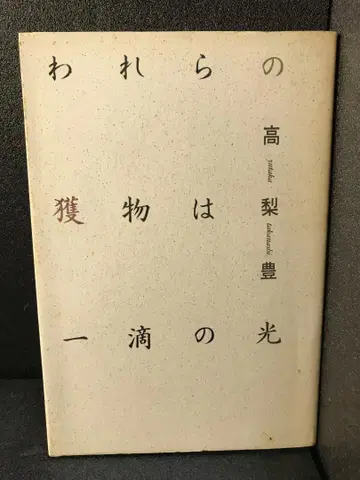 われらの
獲物は
一滴の光
高梨豊
yutaka takanashi